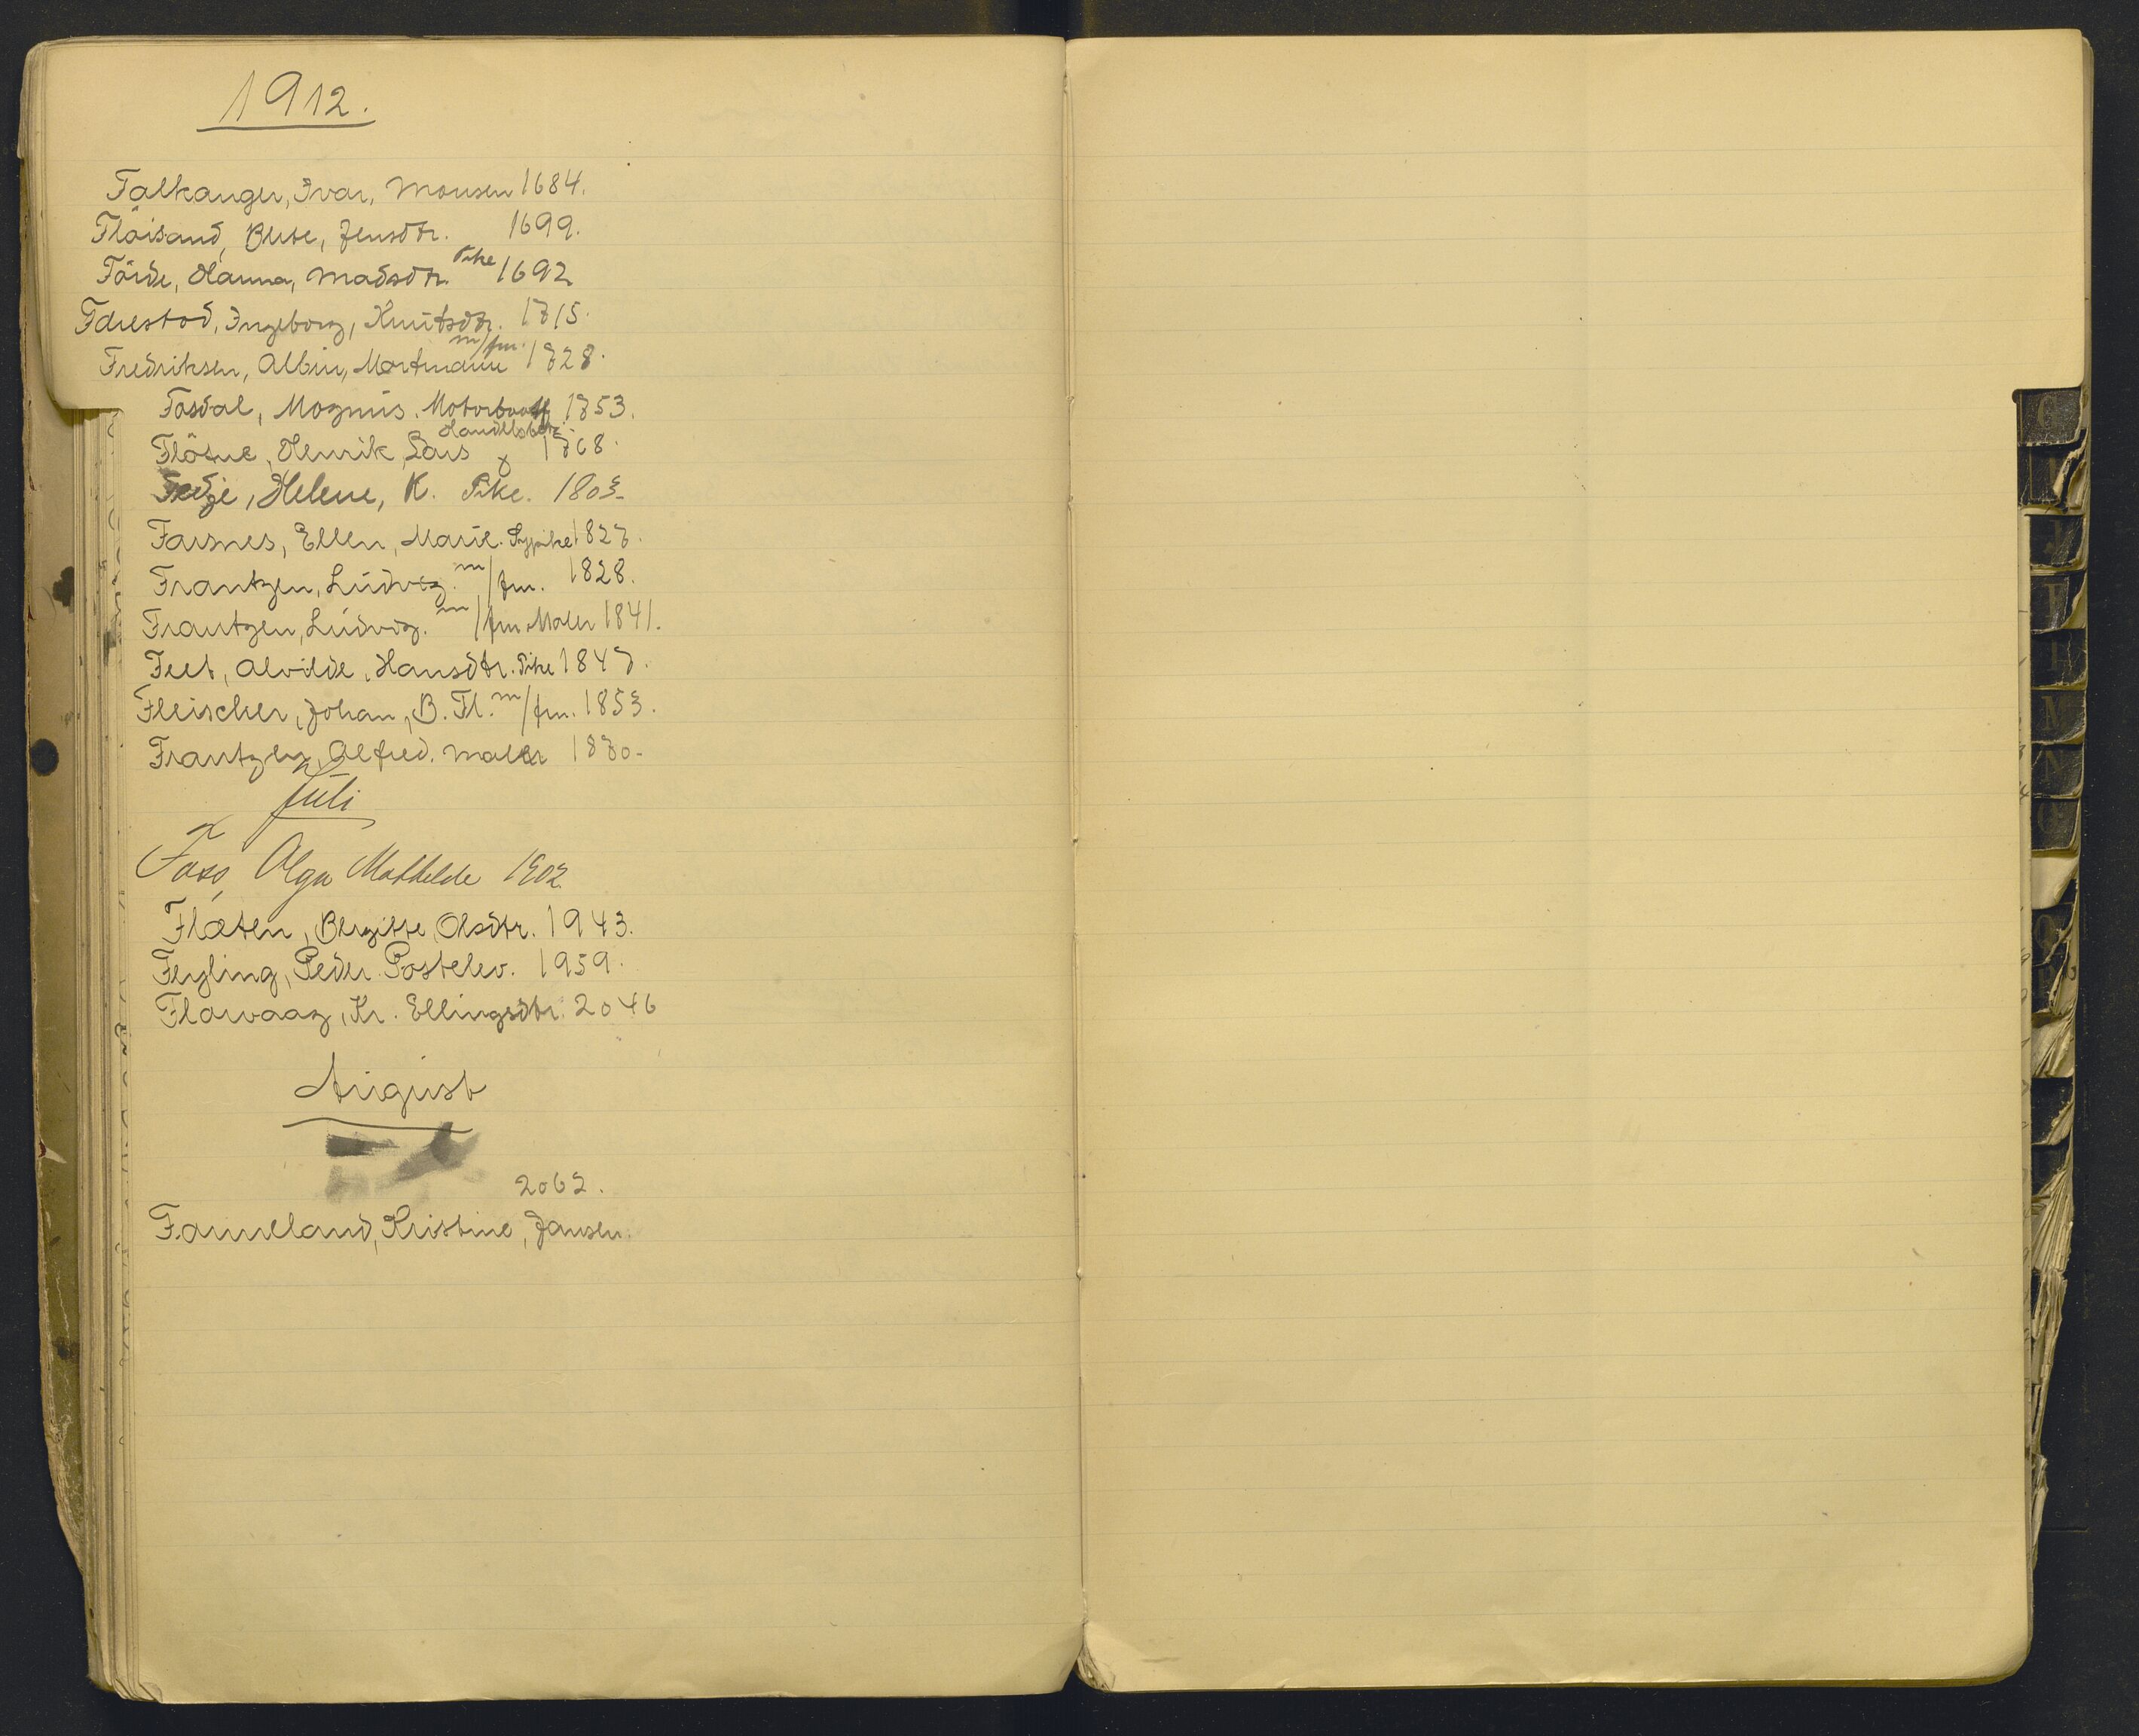 1912.
Falkanger, Ivar, Monsen 1684.
Flöisand, Berte, Jensdtr. 1699.
Förde, Hanna, Madsdtr. Pike 1692
Ingeborg, Knutsdtr. 1715.
Fredriksen, Albin, Hartmann m/fm. 1728.
Fosdal, Magnus. 1753.
Flötne, Henrik, Lars 1768.
Fedje, Helene, K. Pike. 1803.
Farsnes, Ellen, Marie. Sypike 1827.
Frantzen, Ludvig. m/fm. 1828.
Frantzen, Ludvig. m/fm. Maler 1841.
Feet, Alvilde, Hansdtr. Pike 1847.
Fleischer, Johan, B. Fl. m/fm. 1853.
Frantzen, Alfred. Maler 1870.
Juli
Foss, Olga Mathilde 1902
Flaten, Bergitte, Olsdtr. 1943.
Feyling, Peder. Postelev. 1959.
Flarvaag, Kr. Ellingsdtr. 2046
August
2062.
Fanneland, Kristine, Jansen.
G
M
N